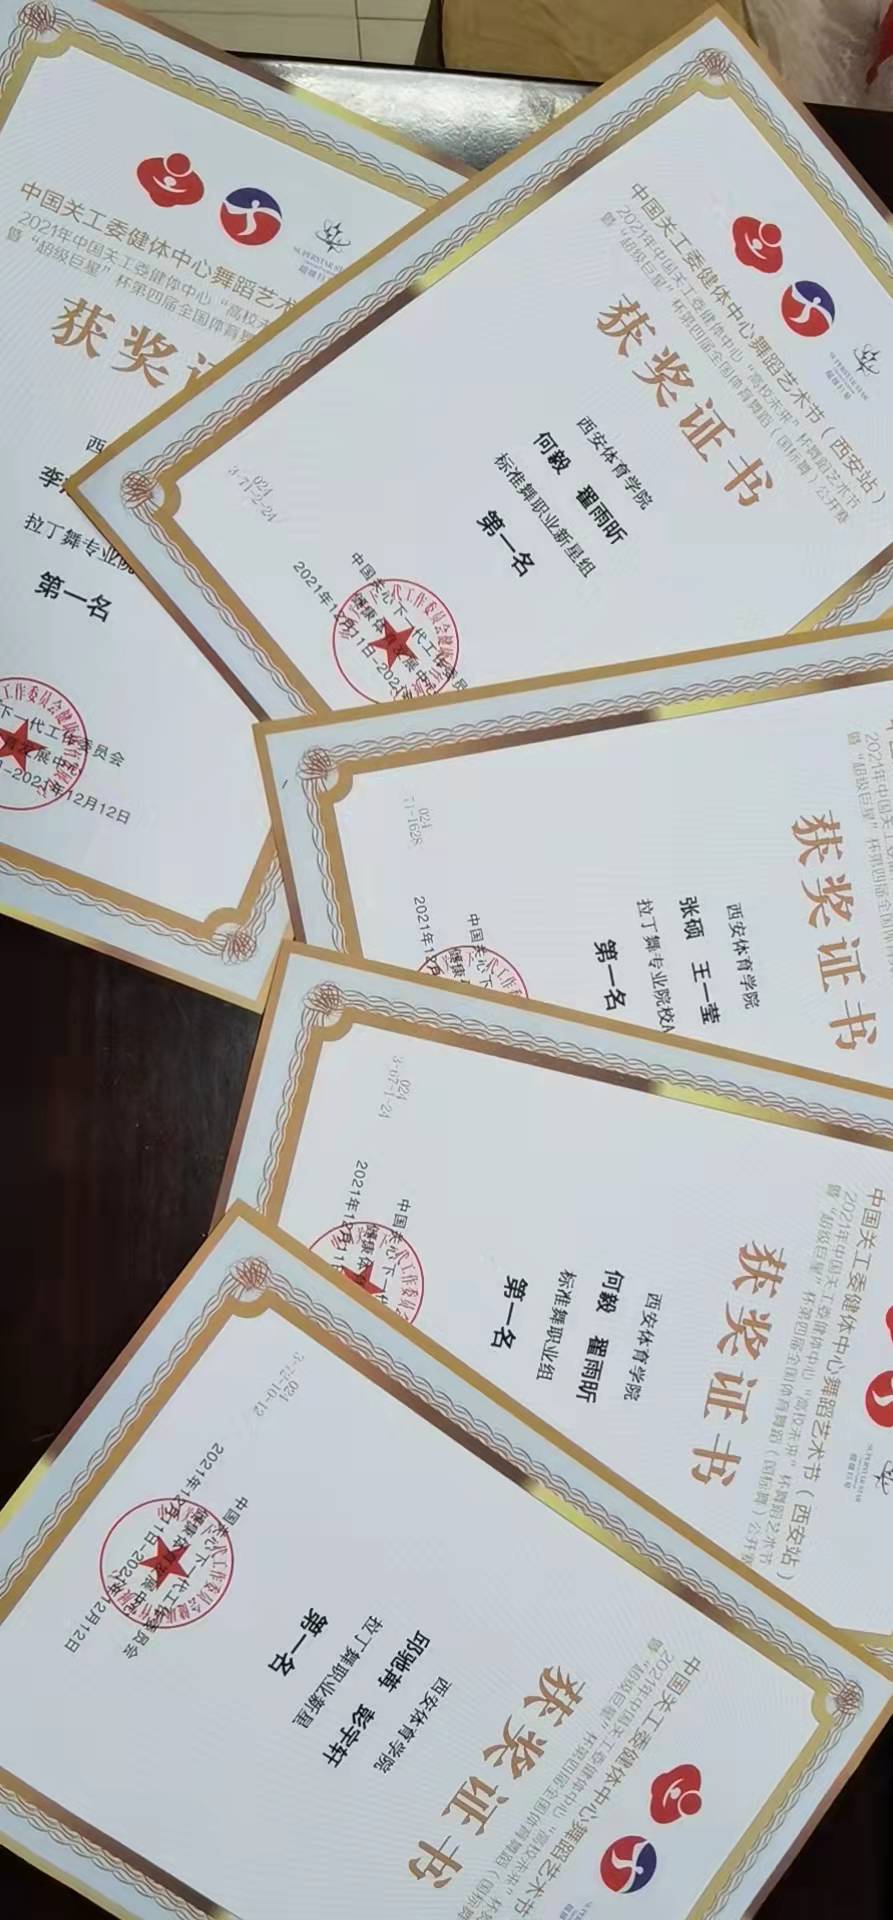 中国关工委健体中心舞蹈艺术
2021年中国关工委健体中心“高校未
暨“超级巨星”杯第四届全国体育舞
获奖
西
李
拉丁舞专业院
第一名
下一代工作委员会
发展中心
-2021年12月12日
中国关工委健体中心舞蹈艺术节（西安站）
2021年中国关工委健体中心“高校未来”杯舞蹈艺术节
暨“超级巨星”杯第四届全国体育舞蹈（国标舞）公开赛
获奖证书
西安体育学院
何毅 翟雨昕
标准舞职业新星组
第一名
024
3-71-2-24
中国关心下一代工作委员会
健康体育发展中心
2021年12月11日-2021年
2021年中国关工委健体中心
暨“超级巨星”杯第四届全国体
获奖证书
西安体育学院
张硕 王一莹
拉丁舞专业院校A
第一名
024
71-1628
中国关心
健康
2021年12月
中国关工委健体中心舞蹈艺术节（西安站）
2021年中国关工委健体中心“高校未来”杯舞蹈艺术节
暨“超级巨星”杯第四届全国体育舞蹈（国标舞）公开赛
获奖证书
西安体育学院
何毅 翟雨昕
标准舞职业组
第一名
024
3-67-1-24
中国关心下一代
健康体
2021年12月11日
中国关工委健体中心舞蹈艺术节
2021年中国关工委健体中心“高校未来”杯
暨“超级巨星”杯第四届全国体育舞蹈（国标舞
获奖证书
西安体育学院
邱驰苒 彭宇轩
拉丁舞职业新星
第一名
024
3-72-10-12
中国关心下一代工作委员会
健康体育发展中心
2021年12月11日-2021年12月12日